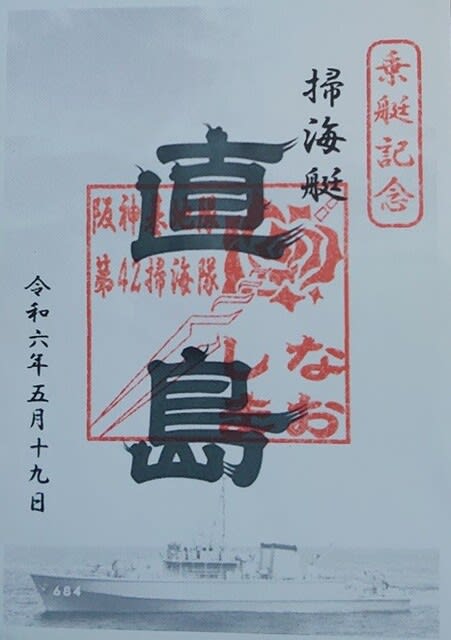 乗艇記念
掃海艇
直島
阪神基地隊
第42掃海隊
なお
しま
令和六年五月十九日
684